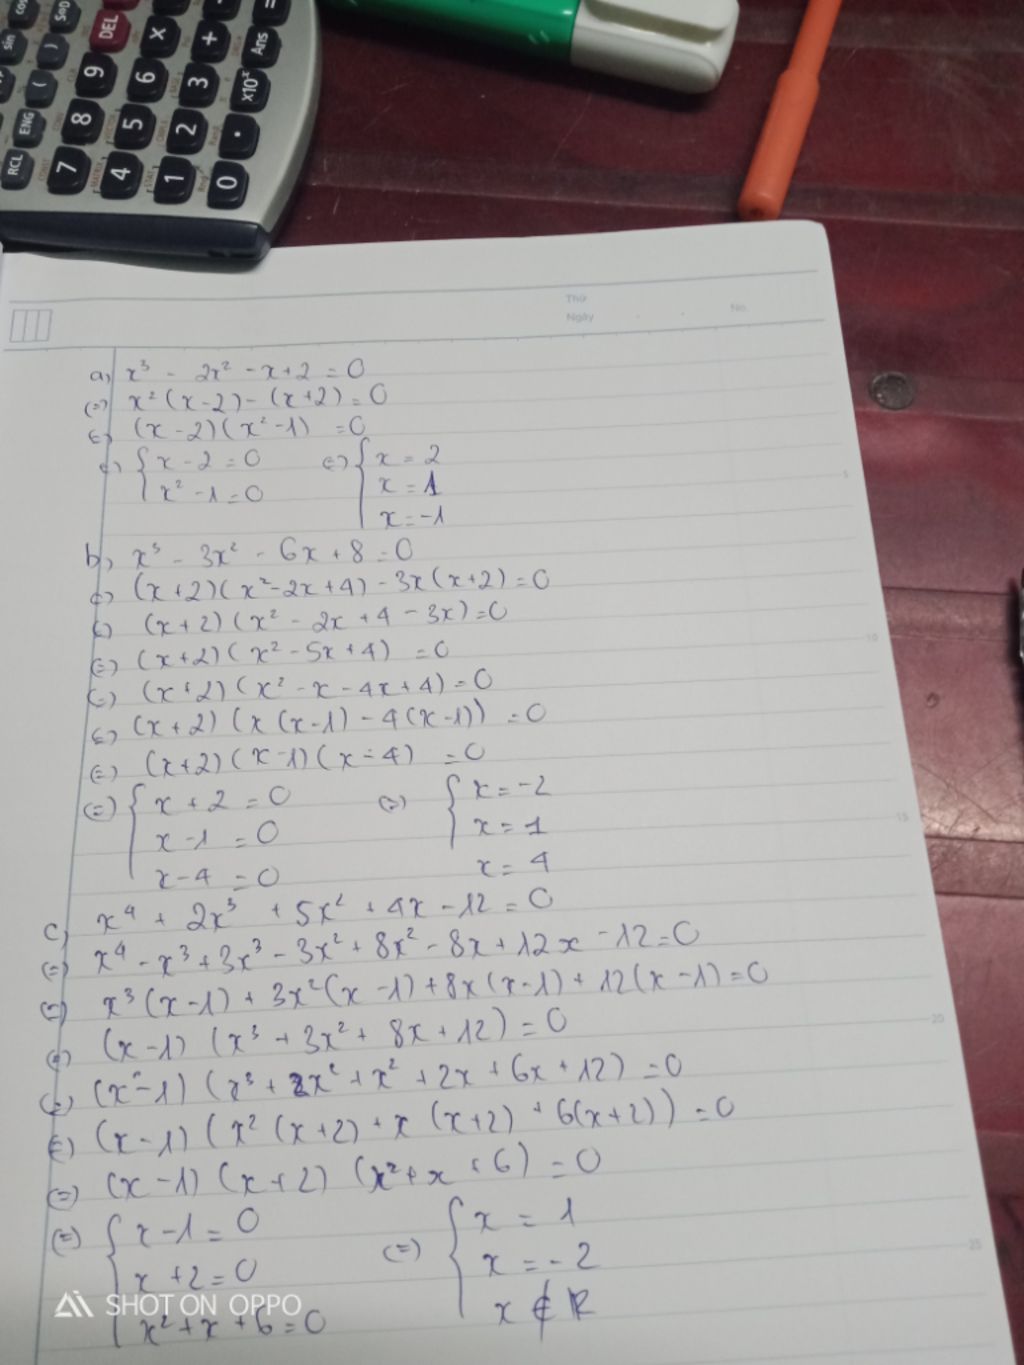 sin
cos
S⇔D
DEL
ENG
(
)
9
6
3
×
+
Ans
×10ˣ
=
RCL
7
8
4
5
1
2
0
.
Thứ
Ngày
No.
a) x³ - 2x² - x + 2 = 0
(=) x²(x-2) - (x+2) = 0
(=) (x-2)(x²-1) = 0
(=) { x-2 = 0 (=) { x = 2
x²-1 = 0 x = 1
x = -1
b) x³ - 3x² - 6x + 8 = 0
(=) (x+2)(x²-2x+4) - 3x(x+2) = 0
(=) (x+2)(x² - 2x + 4 - 3x) = 0
(=) (x+2)(x² - 5x + 4) = 0
(=) (x+2)(x² - x - 4x + 4) = 0
(=) (x+2)(x(x-1) - 4(x-1)) = 0
(=) (x+2)(x-1)(x-4) = 0
(=) { x + 2 = 0 (=) { x = -2
x - 1 = 0 x = 1
x - 4 = 0 x = 4
c) x⁴ + 2x³ + 5x² + 4x - 12 = 0
(=) x⁴ - x³ + 3x³ - 3x² + 8x² - 8x + 12x - 12 = 0
(=) x³(x-1) + 3x²(x-1) + 8x(x-1) + 12(x-1) = 0
(=) (x-1)(x³ + 3x² + 8x + 12) = 0
(=) (x-1)(x³ + 2x² + x² + 2x + 6x + 12) = 0
(=) (x-1)(x²(x+2) + x(x+2) + 6(x+2)) = 0
(=) (x-1)(x+2)(x² + x + 6) = 0
(=) { x - 1 = 0 (=) { x = 1
x + 2 = 0 x = -2
x² + x + 6 = 0 x ∉ R
5
10
15
20
25
SHOT ON OPPO